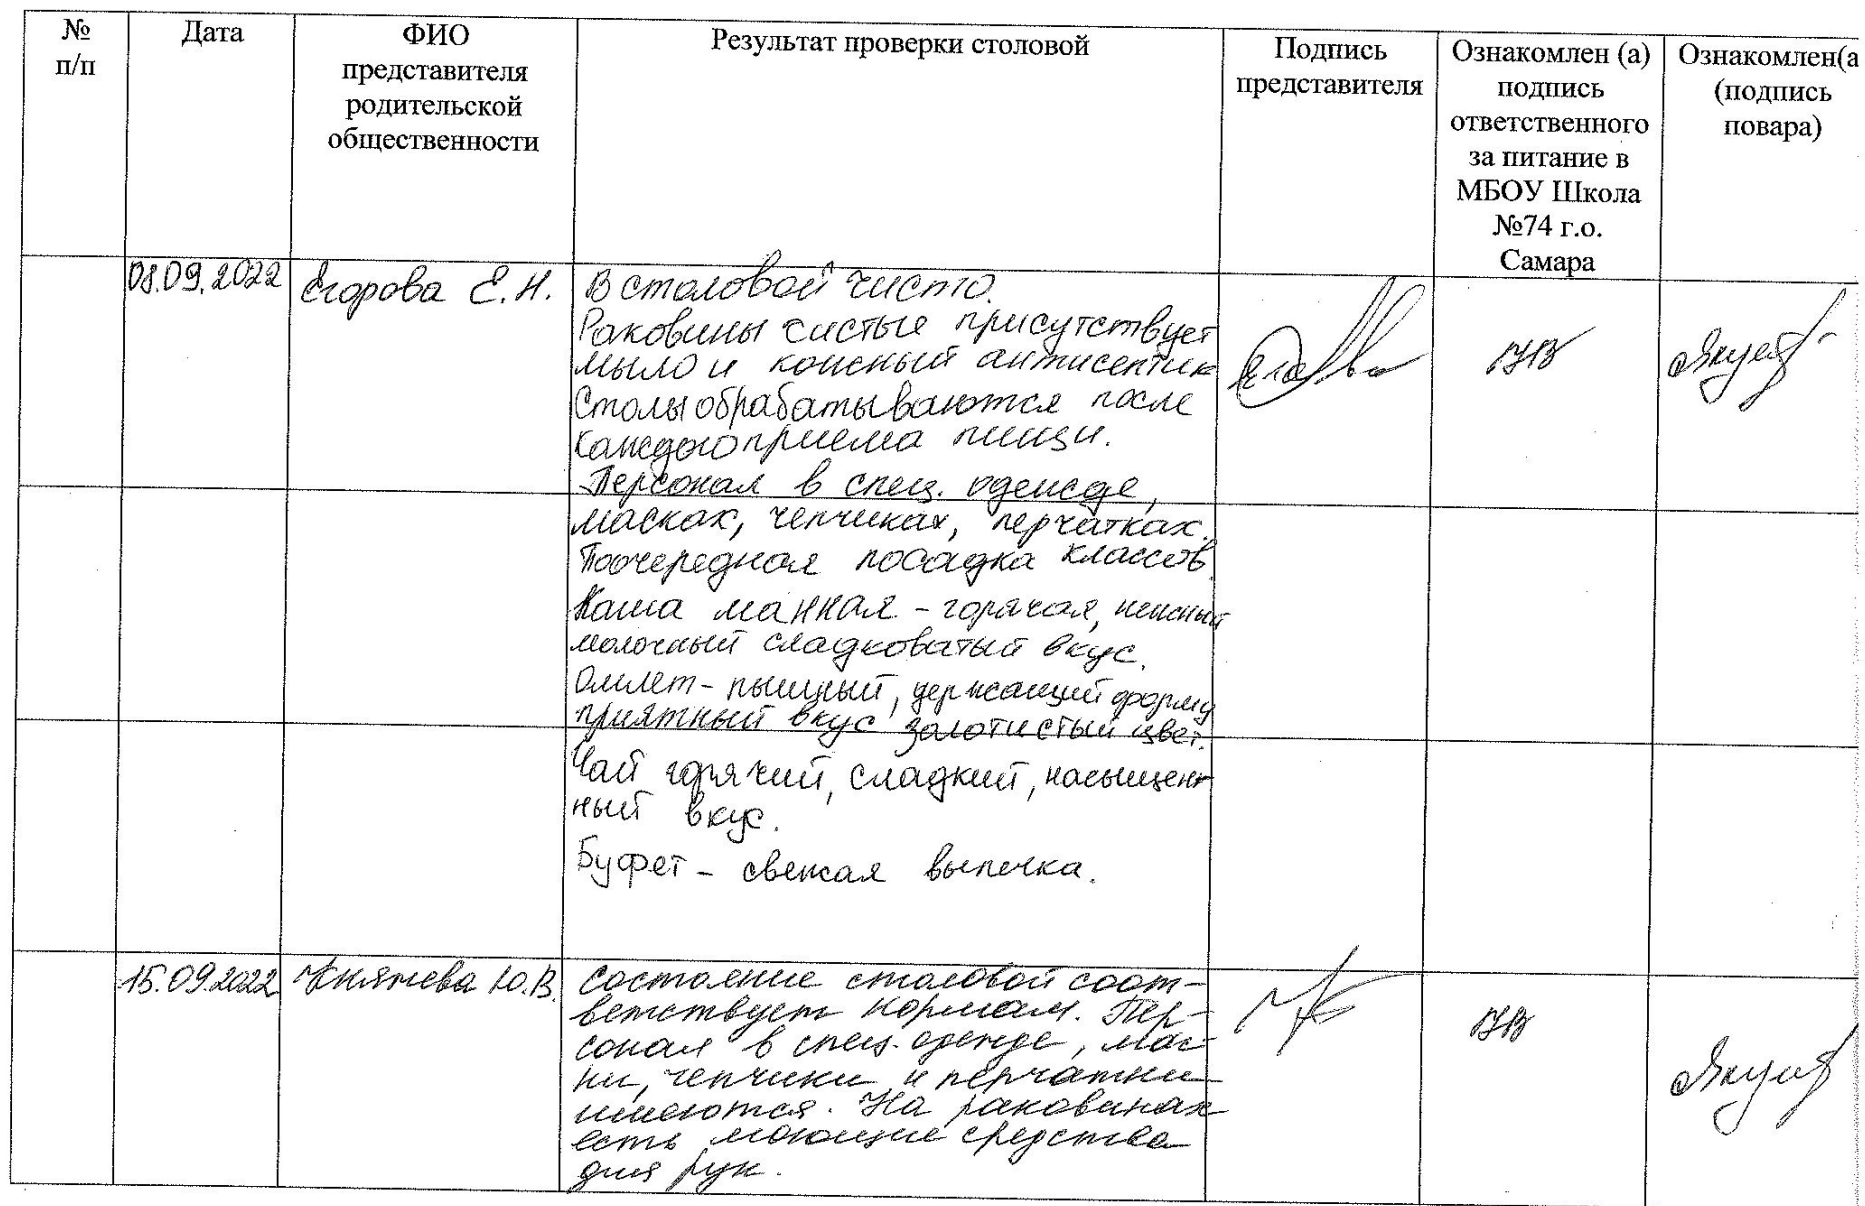 №
п/п
Дата
ФИО
представителя
родительской
общественности
Результат проверки столовой
Подпись
представителя
Ознакомлен (а)
подпись
ответственного
за питание в
МБОУ Школа
№74 г.о.
Самара
Ознакомлен(а
(подпись
повара)
08.09.2022
Егорова Е.Н.
В столовой чисто.
Раковины чистые присутствует
мыло и кожный антисептик
Столы обрабатываются после
каждого приема пищи.
Персонал в спец. одежде,
масках, чепчиках, перчатках.
Поочередная посадка классов.
Каша манная - горячая, нежный
молочный сладковатый вкус.
Омлет - пышный, держащий форму
приятный вкус золотистый цвет.
Чай горячий, сладкий, насыщен-
ный вкус.
Буфет - свежая выпечка.
15.09.2022
Княжева Ю.В.
Состояние столовой соот-
ветствует нормам. Пер-
сонал в спец. одежде, мас-
ки, чепчики и перчатки
имеются. На раковинах
есть моющие средства
для рук.